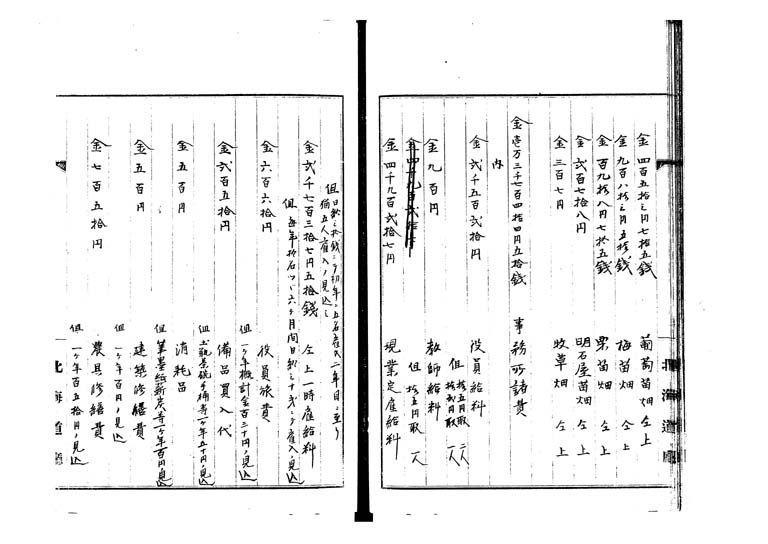 金四百五拾弐円七拾五銭 葡萄苗畑 仝上
金九百八拾弐円五拾銭 梅苗畑 仝上
金百九拾八円七拾五銭 果苗畑 仝上
金弐百七拾八円 明石屋苗畑 仝上
金三百七円 牧草畑 仝上
金壱万三千七百四拾四円五拾銭 事務所諸費
内
金弐千五百弐拾円 役員給料
但 拾五円取 二人
拾弐円取 一人
金九百円 教師給料
但 拾五円取 一人
金四千九百弐拾七円 現業定雇給料
北海道庁
但日給三拾銭
金弐千七百三拾七円五拾銭 仝上一時雇給料
金六百六拾円 役員旅費
但一ヶ年概計金百三十円ノ見込
金弐百五拾円 備品買入代
金五百円 消耗品
但筆墨紙薪炭等一ヶ年百円ノ見込
金五百円 建築修繕費
但一ヶ年百円ノ見込
金七百五拾円 農具修繕費
但一ヶ年百五拾円ノ見込
北海道庁